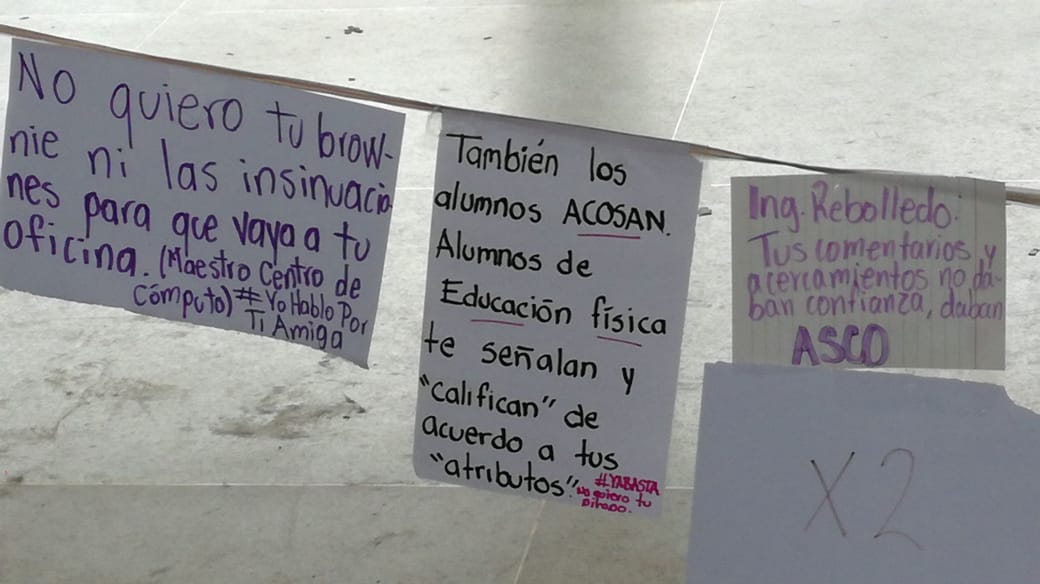 No quiero tu brow-
nie ni las insinuacio
nes para que vaya a tu
oficina. (Maestro Centro de
Cómputo) # Yo Hablo Por
Ti Amiga
También los
alumnos ACOSAN.
Alumnos de
Educación física
te señalan y
"califican" de
acuerdo a tus
"atributos".
#YABASTA
No quiero tu
piropo.
Ing. Rebolledo:
Tus comentarios y
acercamientos no da-
ban confianza, daban
ASCO
X2